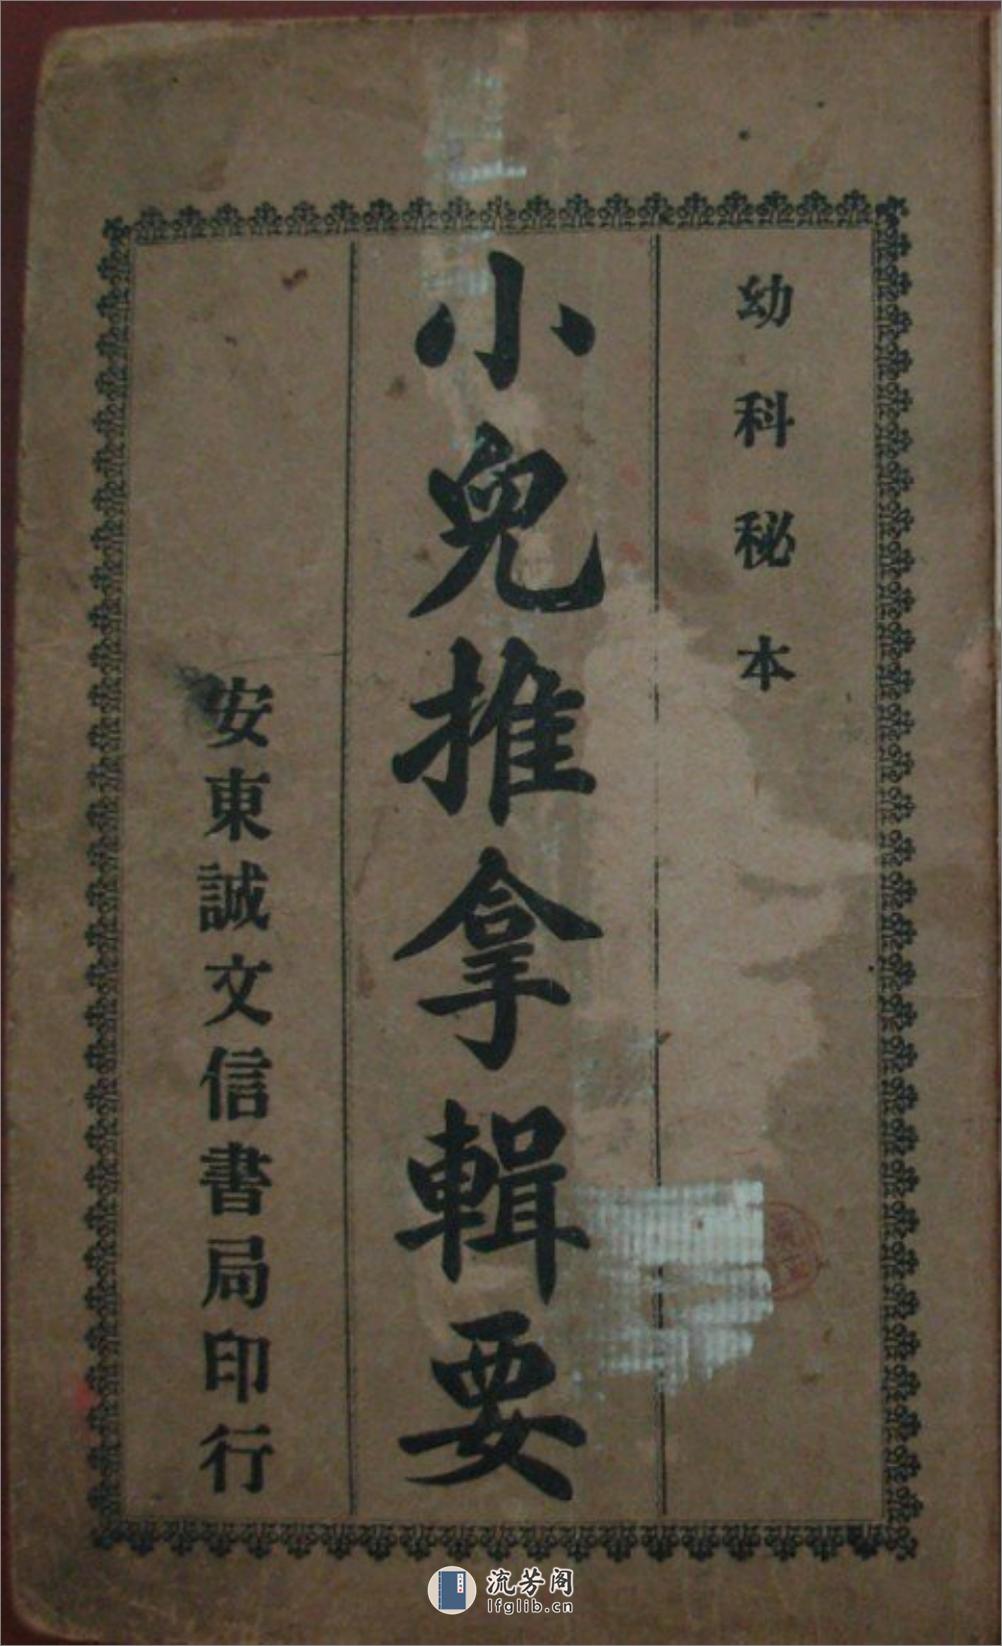 幼科秘本
小兒推拿輯要
安東誠文信書局印行
流芳阁
lfglib.cn